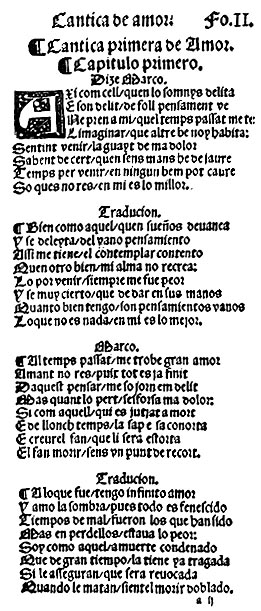 Cantica de amor: Fo.II.
¶Cantica primera de Amor.
¶Capitulo primero.
Dize Marco.
AXi com cell/quen lo somnys delita
E son delit/de foll pensament ve
Ne pren a mi/quel temps passat me te:
L imaginar/que altre be noy habita:
Sentint venir/la guayt de ma dolor
Sabent de cert/quen sens mans he de jaure
Temps per venir/en ningun bem pot caure
So ques no res/en mi es lo millor.
Traducion.
¶Bien como aquel/quen sueños deuanea
Y se deleyta/del vano pensamiento
Assi me tiene/el contemplar contento
Quen otro bien/mi alma no recrea:
Lo por venir/siempre me fue peor
Y se muy cierto/que de dar en sus manos
Quanto bien tengo/son pensamientos vanos
Loque no es nada/en mi es lo mejor.
Marco.
¶Al temps passat/me trobe gran amor
Amant no res/puix tot es ja finit
Daquest pensar/me sojorn em delit
Mas quant lo pert/sesforsa ma dolor:
Si com aquell/qui es jutjat a mort
E de llonch temps/la sap e sa conorta
E creurel fan/que li sera estorta
El fan morir/sens vn punt de recort.
Traducion.
¶Aloque fue/tengo infinito amor
Y amo la sombra/pues todo es fenescido
Tiempos de mal/fueron los que han sido
Mas en perdellos/estaua lo peor:
Soy como aquel/a muerte condenado
Que de gran tiempo/la tiene ya tragada
Si le asseguran/que sera reuocada
Quando le matan/sientel morir doblado.
a ij